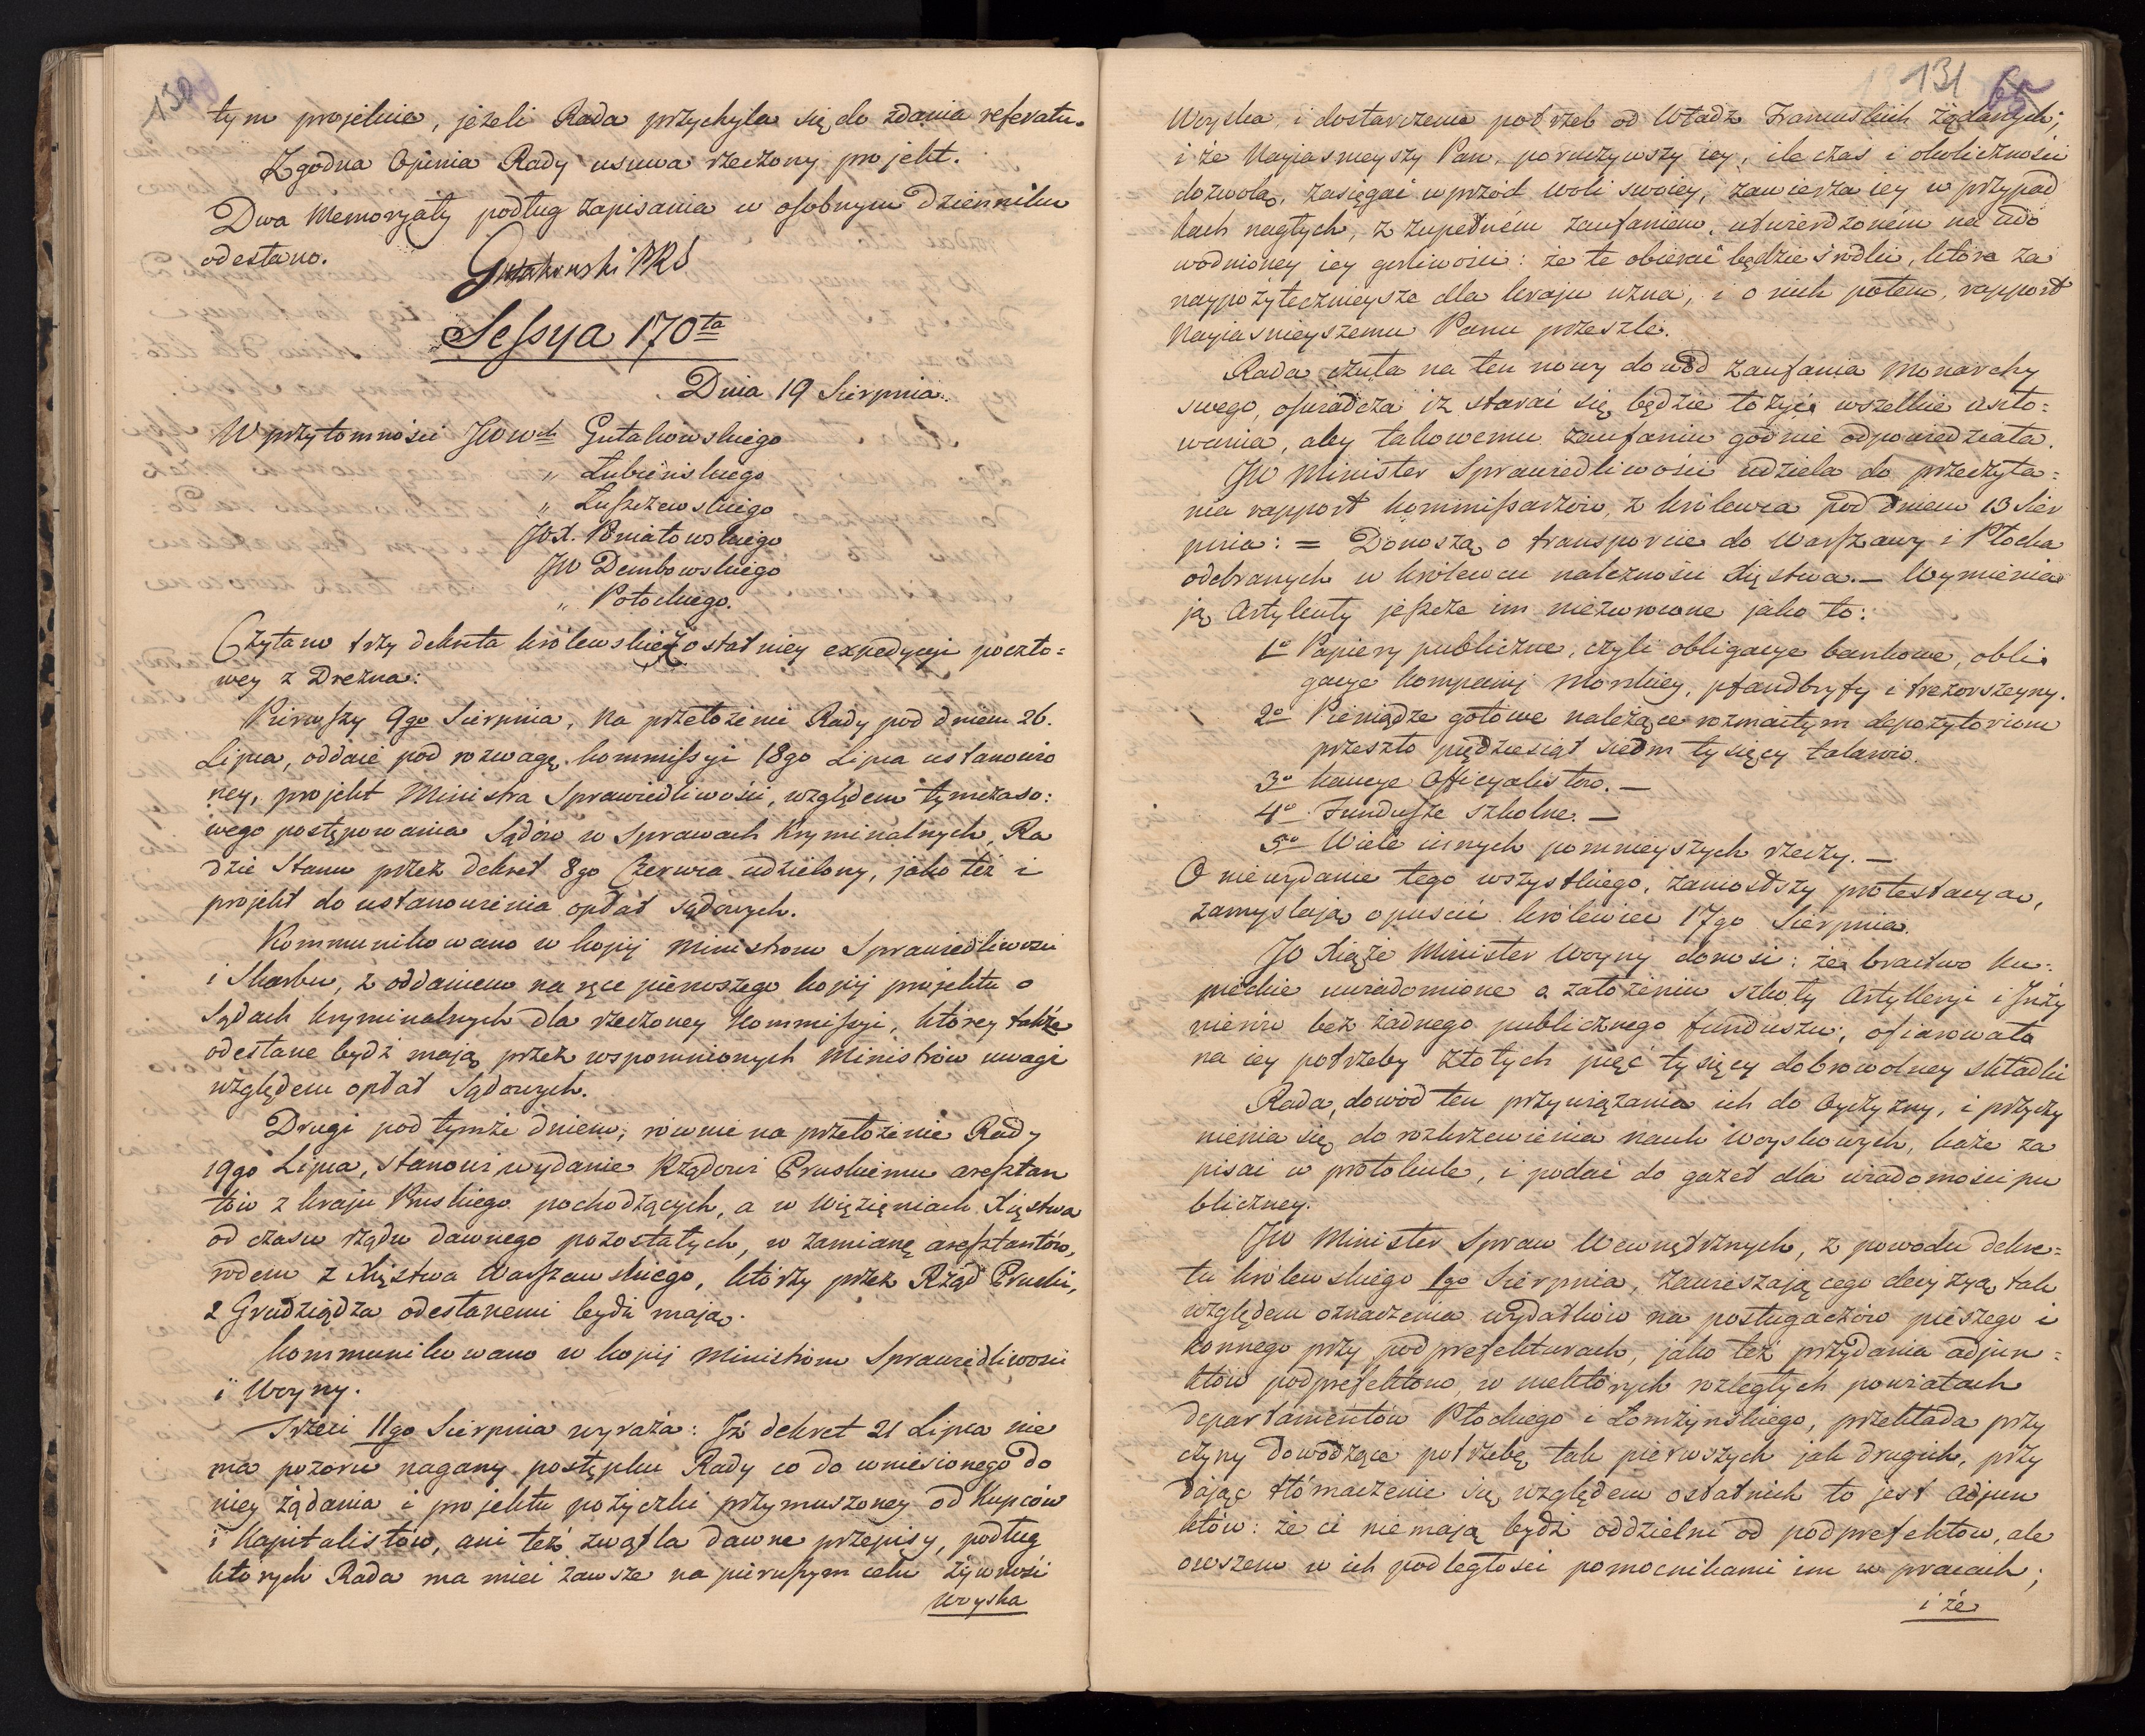 130
tym projekcie, jeżeli Rada przychyla się do zdania referatu.
Zgodna Opinia Rady usuwa rzeczony projekt.
Dwa Memoryały podług zapisania w osobnym Dzienniku
odesłano.
Gutakowski PRS
Sessya 170ta
Dnia 19 Sierpnia.
W przytomności JWWch Gutakowskiego
„ Łubieńskiego
„ Łuszczewskiego
JOX. Poniatowskiego
JW Dembowskiego
„ Potockiego.
Czytano trzy dekreta królewskie z ostatniey expedycyi poczto=
wey z Drezna:
Pierwszy 9go Sierpnia, na przełożenie Rady pod dniem 26.
Lipca, oddaie pod rozwagę kommissyi 18go Lipca ustanowio
ney, projekt Ministra Sprawiedliwości, względem tymczaso:
wego postępowania Sądów w Sprawach Kryminalnych, Ra
dzie Stanu przez dekret 8go Czerwca udzielony, jako też i
projekt do ustanowienia opłat sądowych.
Kommunikowano w kopij Ministrom Sprawiedliwości
i Skarbu, z oddaniem na ręce pierwszego kopij projektu o
Sądach kryminalnych dla rzeczoney Kommissyi, którey także
odesłane bydź mają przez wspomnionych Ministrów uwagi
względem opłat Sądowych.
Drugi pod tymże dniem, rownie na przełożenie Rady
19go Lipca, stanowi wydanie Rządowi Pruskiemu aresztan
tów z kraju Pruskiego pochodzących, a w Więzieniach Xięstwa
od czasu rządu dawnego pozostałych, w zamianę aresztantów,
rodem z Xięstwa Warszawskiego, którzy przez Rząd Pruski,
z Grudziądza odesłanemi bydź mają.
Kommunikowano w kopij Ministrom Sprawiedliwości
i Woyny.
Trzeci 11go Sierpnia wyraża: Iż dekret 21 Lipca nie
ma pozoru nagany postępku Rady co do wniesionego do
niey żądania i projektu pożyczki przymuszoney od Kupców
i Kapitalistów, ani też zwątla dawne przepisy, podług
których Rada ma mieć zawsze na pierwszym celu żywność
woyska
131 65
Woyska, i dostarczenie potrzeb od Władz Francuskich żądanych;
i że Nayiasnieyszy Pan, poruczywszy iey, ile czas i okoliczności
dozwolą, zasięgać wprzód woli swoiey, zawierza iey w przypad
kach nagłych, z zupełném zaufaniem, utwierdzoném na udo
wodnioney iey gorliwości: że te obierać będzie śrzodki, które za
naypożytecznieysze dla kraju uzna, i o nich potem, rapport
Nayiasnieyszemu Panu przeszle.
Rada czuła na ten nowy dowód zaufania Monarchy
swego, oświadcza iż starać się będzie łożyć wszelkie usiło=
wania, aby takowemu zaufaniu godnie odpowiedziała.
JW Minister Sprawiedliwości udziela do przeczyta=
nia rapport kommissarzów, z królewca pod dniem 13 Sier
pnia: = Donoszą o transporcie do Warszawy i Płocka
odebranych w królewcu należności Xięstwa. — Wymienia
ją Artykuły jeszcze im niezwrocone jako to:
1o Papiery publiczne, czyli obligacye bankowe, obli
gacye kompanij Morskiey, pfandbryfy i trezorszeyny.
2o Pieniądze gotowe należące rozmaitym depozytoriom
przeszło pięćdziesiąt siedm tysięcy talarów.
3o kaucye Officyalistów. —
4o Fundusze szkolne. —
5o Wiele innych pomnieyszych rzeczy. —
O niewydanie tego wszystkiego, zaniosłszy protestacyą,
zamyslają opuścić królewiec 17go Sierpnia.
JO Xiąże Minister Woyny donosi: że bractwo ku=
pieckie uwiadomione o założeniu szkoły Artylleryi i Inży
nierów bez żadnego publicznego funduszu, ofiarowało
na iey potrzeby złotych pięć tysięcy dobrowolney składki
Rada, dowód ten przywiązania ich do Oyczyzny, i przyczy
nienia się do rozkrzewienia nauk woyskowych, każe za
pisać w protokule, i podać do gazet dla wiadomości pu
bliczney.
JW Minister Spraw Wewnętrznych, z powodu dekre=
tu królewskiego 1go Sierpnia, zawieszającego decyzyą tak
względem oznaczenia wydatków na posługaczów pieszego i
konnego przy podprefekturach, jako też przydania adjun=
któw podprefektów, w niektórych rozległych powiatach
departamentów Płockiego i Łomżyńskiego, przekłada przy
czyny dowodzące potrzebę tak pierwszych jak drugich, przy
dając tłómaczenie się względem ostatnich to jest Adjun
któw: że ci niemają bydź oddzielni od podprefektów, ale
owszem w ich podległości pomocnikami im w pracach;
i że